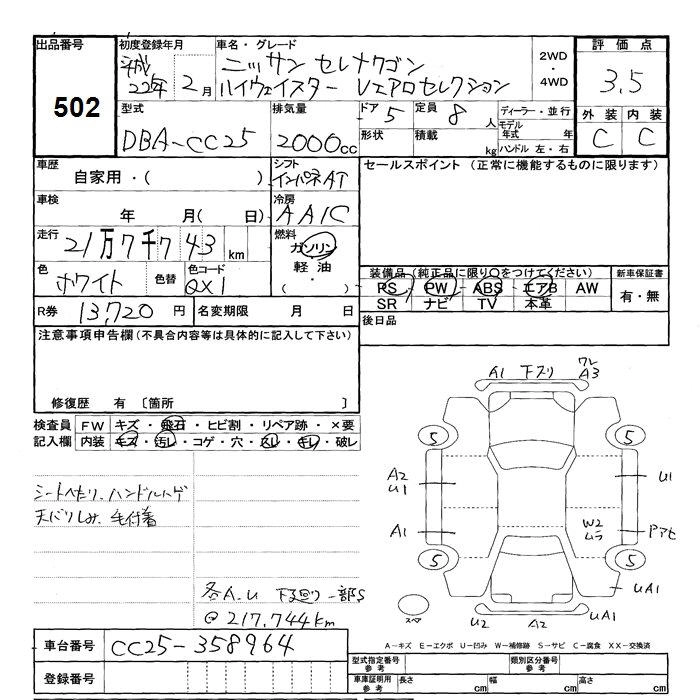 出品番号 初度登録年月 車名・グレード 2WD・4WD 評価点
502 平成22年 2月 ニッサン セレナワゴン 3.5
ハイウェイスター Vエアロセレクション
型式 排気量 ドア 5 定員 8人 ディーラー・並行 外装 内装
DBA-CC25 2000cc 形状 積載 kg モデル年式 年 C C
ハンドル 左・右
車歴 シフト セールスポイント (正常に機能するものに限ります)
自家用・( ) インパネAT
車検 冷房
年 月( 日) AAIC
走行 燃料
21万7千743km ガソリン・軽油・( )
色 色替 色コード 装備品(純正品に限り○をつけてください) 新車保証書
ホワイト QX1 PS PW ABS エアB AW 有・無
SR ナビ TV 本革
R券 13,720円 名変期限 月 日 後日品
注意事項申告欄(不具合内容等は具体的に記入して下さい)
修復歴 有 〔箇所 〕
検査員 FW キズ・飛石・ヒビ割・リペア跡・×要
記入欄 内装 キズ・汚レ・コゲ・穴・スレ・キレ・破レ
シートへたり、ハンドルハゲ
天バリしみ、毛付着
各A.U 下廻り一部S
@217,744km
A1 下スリ ワレ A3
5 5
A2 U1 U1
A1 W2 ムラ Pアセ
5 5
UA1
スペア U2 A2 UA1
A-キズ E-エクボ U-凹み W-補修跡 S-サビ C-腐食 XX-交換済
車台番号 CC25-358964
型式指定番号 参考 類別区分番号 参考
登録番号 車庫証明用 参考 長さ cm 幅 cm 高さ cm